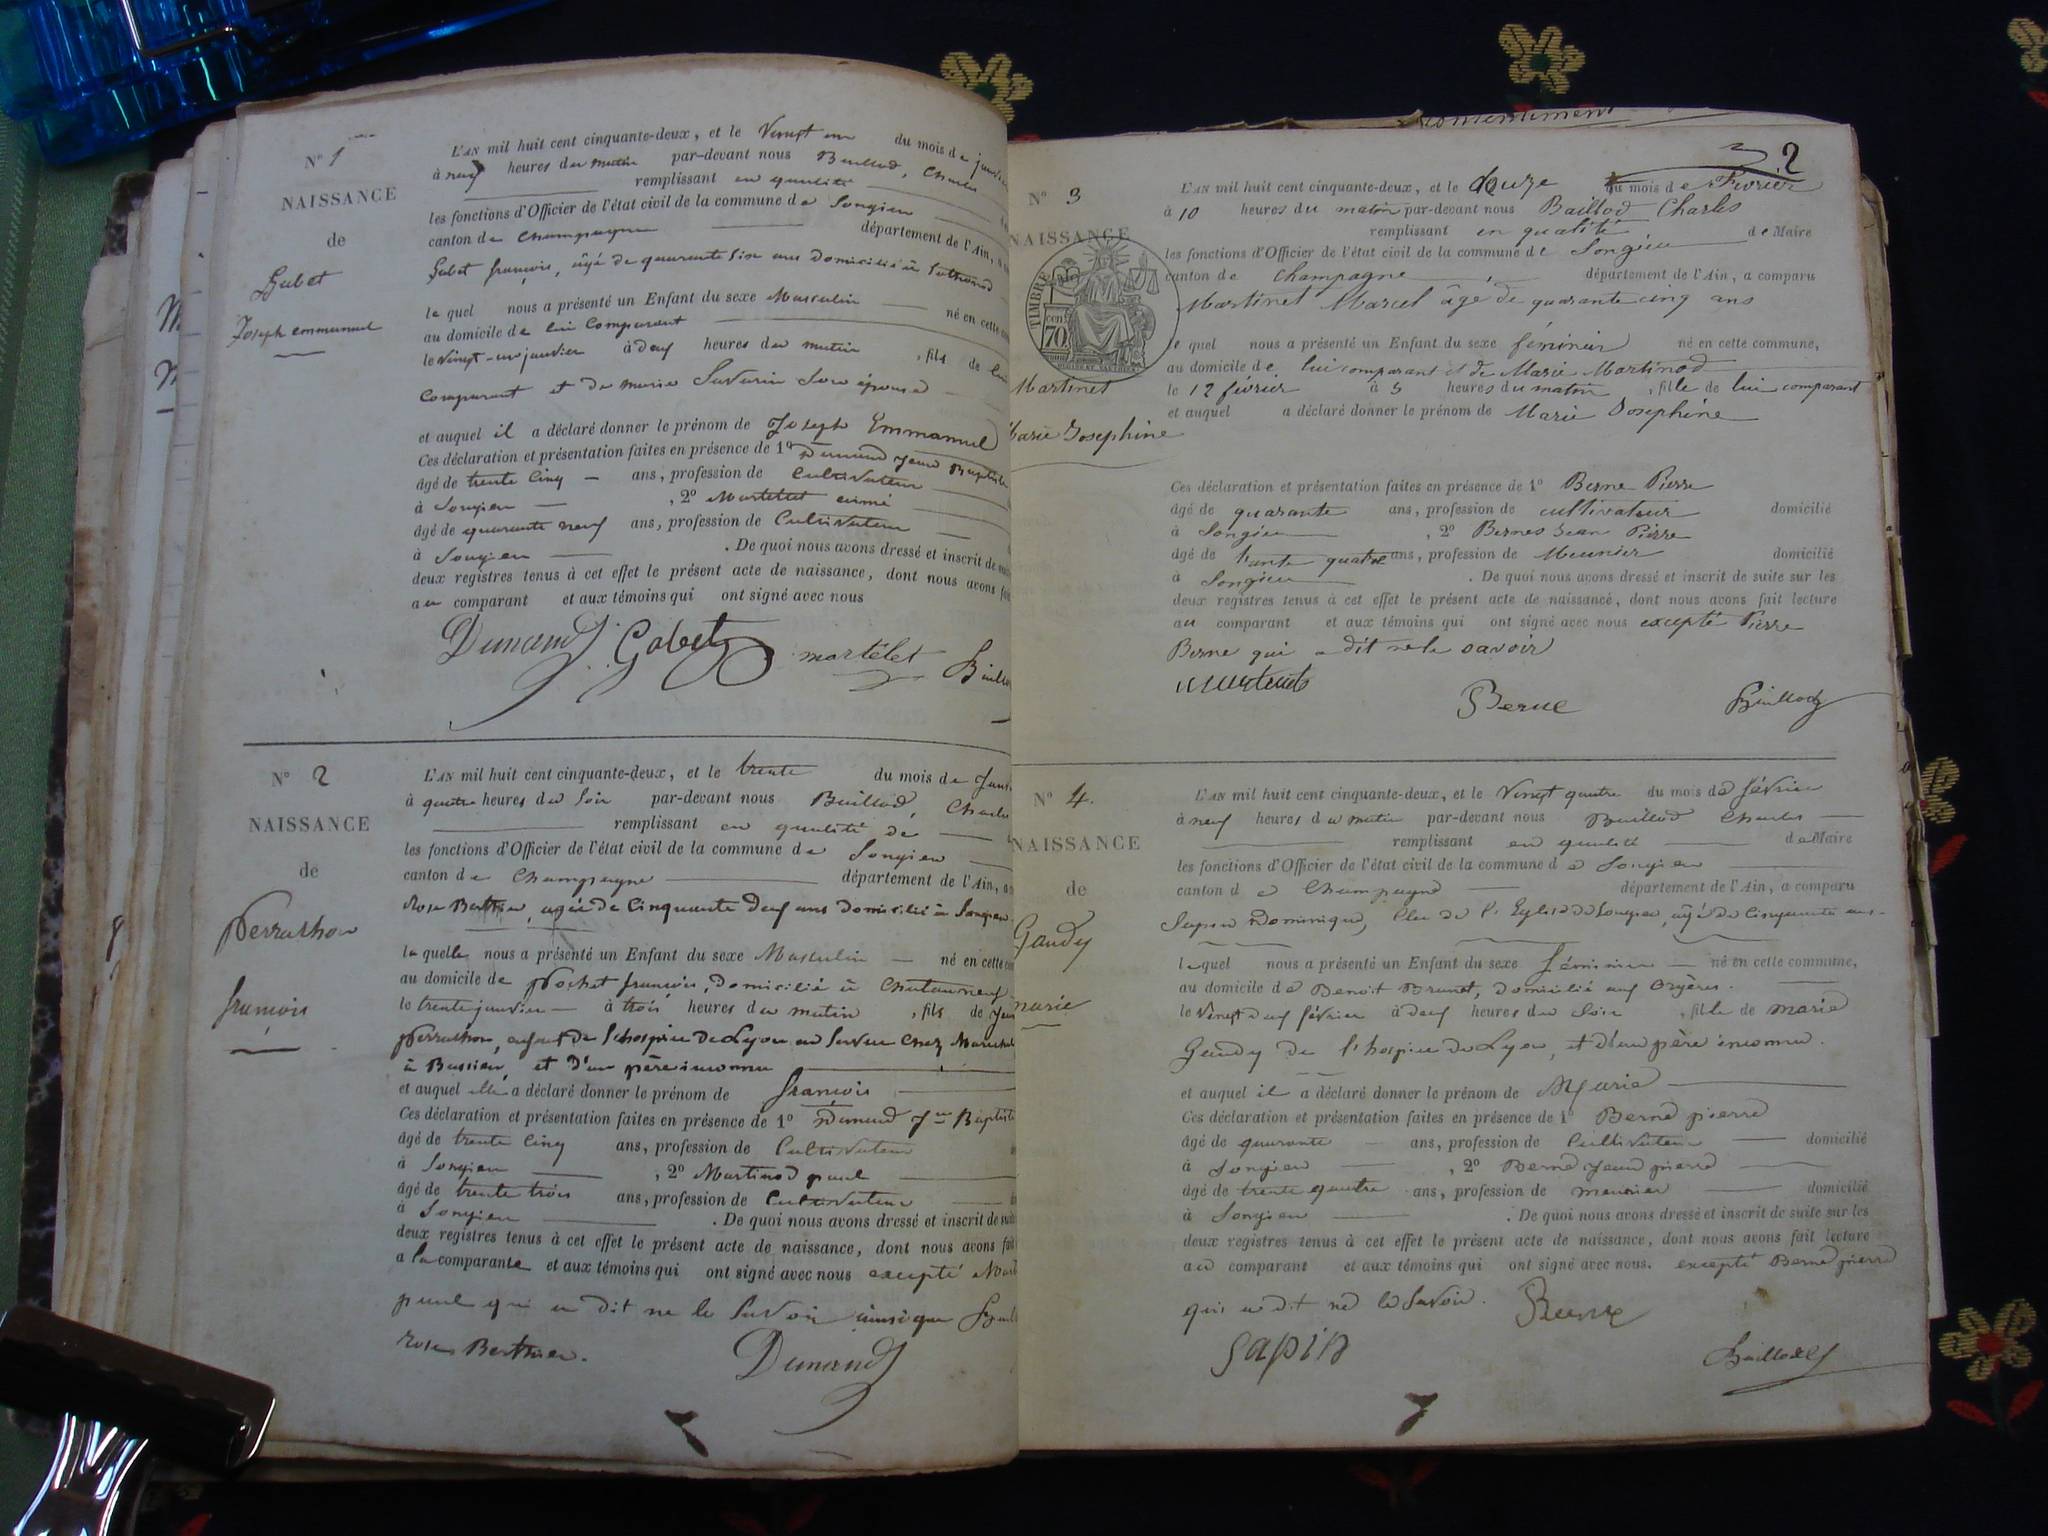 N° 1
NAISSANCE
de
Gabet
Joseph emmanuel
L'AN mil huit cent cinquante-deux, et le Vingt un du mois de janvier
à neuf heures du matin par-devant nous Baillod, Charles
remplissant en qualité
les fonctions d'Officier de l'état civil de la commune de Songieu
canton de Champagne département de l'Ain, a
Gabet françois, âgé de quarante six ans domicilié à
le quel nous a présenté un Enfant du sexe Masculin né en cette
au domicile de lui Comparant
le Vingt-un janvier à deux heures du matin , fils de lui
Comparant et de marie Savarin Son épouse
et auquel il a déclaré donner le prénom de Joseph Emmanuel
Ces déclaration et présentation faites en présence de 1° Dunand Jean Baptiste
âgé de trente Cinq ans, profession de Cultivateur
à Songieu , 2° Martelet aimé
âgé de quarante neuf ans, profession de Cultivateur
à Songieu . De quoi nous avons dressé et inscrit de
deux registres tenus à cet effet le présent acte de naissance, dont nous avons
au comparant et aux témoins qui ont signé avec nous
Dunand Gabet martelet
N° 2
NAISSANCE
de
Perrachon
françois
L'AN mil huit cent cinquante-deux, et le trente du mois de
à quatre heures du Soir par-devant nous Baillod, Charles
remplissant en qualité de
les fonctions d'Officier de l'état civil de la commune de Songieu
canton de Champagne département de l'Ain, a
Rose Berthier, agée de Cinquante deux ans domicilié à Songieu
la quelle nous a présenté un Enfant du sexe Masculin né en cette
au domicile de Pochet françois, domicilié à Chateauneuf
le trente janvier à trois heures du matin , fils de
Perrachon, enfant de l'hospice de Lyon en Service Chez
à Bassieu, et d'un père inconnu
et auquel elle a déclaré donner le prénom de françois
Ces déclaration et présentation faites en présence de 1° Dunand Jn Baptiste
âgé de trente Cinq ans, profession de Cultivateur
à Songieu , 2° Martinod paul
âgé de trente trois ans, profession de Cultivateur
à Songieu . De quoi nous avons dressé et inscrit de
deux registres tenus à cet effet le présent acte de naissance, dont nous avons
a la comparante et aux témoins qui ont signé avec nous excepté
paul qui a dit ne le Savoir ainsi que
rose Berthier.
Dunand
2
N° 3
NAISSANCE
TIMBRE
70
Martinet
Marie Josephine
L'AN mil huit cent cinquante-deux, et le douze du mois de Fevrier
à 10 heures du matin par-devant nous Baillod Charles
remplissant en qualité de Maire
les fonctions d'Officier de l'état civil de la commune de Songieu
canton de Champagne département de l'Ain, a comparu
Martinet Marcel âgé de quarante cinq ans
le quel nous a présenté un Enfant du sexe féminin né en cette commune,
au domicile de lui comparant et de Marie Martinod
le 12 février à 5 heures du matin , fille de lui comparant
et auquel a déclaré donner le prénom de Marie Josephine
Ces déclaration et présentation faites en présence de 1° Berne Pierre
âgé de quarante ans, profession de cultivateur domicilié
à Songieu , 2° Bernes Jean Pierre
âgé de trante quatre ans, profession de Meunier domicilié
à Songieu . De quoi nous avons dressé et inscrit de suite sur les
deux registres tenus à cet effet le présent acte de naissance, dont nous avons fait lecture
au comparant et aux témoins qui ont signé avec nous excepté Pierre
Berne qui a dit ne le savoir
Berne Baillod
N° 4.
NAISSANCE
de
Gaudy
marie
L'AN mil huit cent cinquante-deux, et le Vingt quatre du mois de février
à neuf heures du matin par-devant nous Baillod Charles
remplissant en qualité de Maire
les fonctions d'Officier de l'état civil de la commune de Songieu
canton de Champagne département de l'Ain, a comparu
Sapin Dominique, Clec de l'Eglise de Songieu, âgé de Cinquante ans.
le quel nous a présenté un Enfant du sexe féminin né en cette commune,
au domicile de Benoit Brunet, domicilié aux
le Vingt deux février à deux heures du Soir , fille de marie
Gaudy de l'hospice de Lyon, et d'un père inconnu.
et auquel il a déclaré donner le prénom de Marie
Ces déclaration et présentation faites en présence de 1° Berne pierre
âgé de quarante ans, profession de Cultivateur domicilié
à Songieu , 2° Berne Jean pierre
âgé de trente quatre ans, profession de meunier domicilié
à Songieu . De quoi nous avons dressé et inscrit de suite sur les
deux registres tenus à cet effet le présent acte de naissance, dont nous avons fait lecture
au comparant et aux témoins qui ont signé avec nous. excepté Berne pierre
qui a dit ne le Savoir. Berne
sapin Baillod